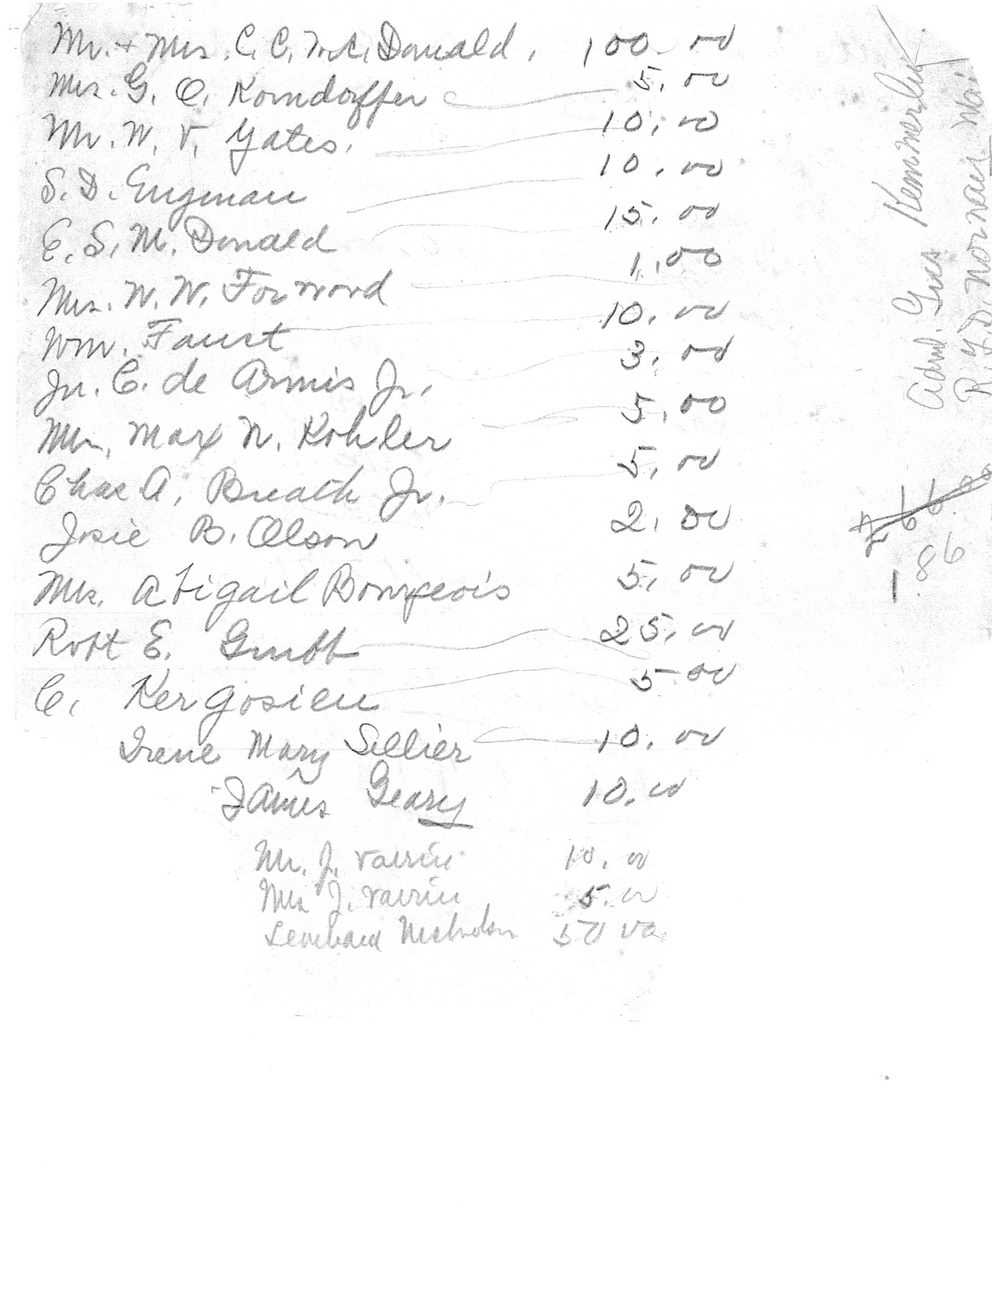 Mr. + Mrs. C. C. McDonald. 100.00
Mrs. G. O. Korndorffer 5.00
Mr. W. V. Yates. 10.00
S. D. Engman 10.00
E. S. McDonald 15.00
Mrs. W. W. Forword 1.00
Wm. Faust 10.00
Jn. C. de Armis Jr. 3.00
Mrs. Max N. Kohler 5.00
Chas A. Breath Jr. 5.00
Josie B. Olson 2.00
Mrs. Abigail Bourgeois 5.00
Robt E. Grubb 25.00
C. Kergosien 5 00
Irene Mary Sellier 10.00
James Geary 10.00
Mr. J. Vairin 10.00
Mrs J. Vairin 5.00
Nicholson 50 00
Adml. Gus Kemmerlin
R.F.D. Norman